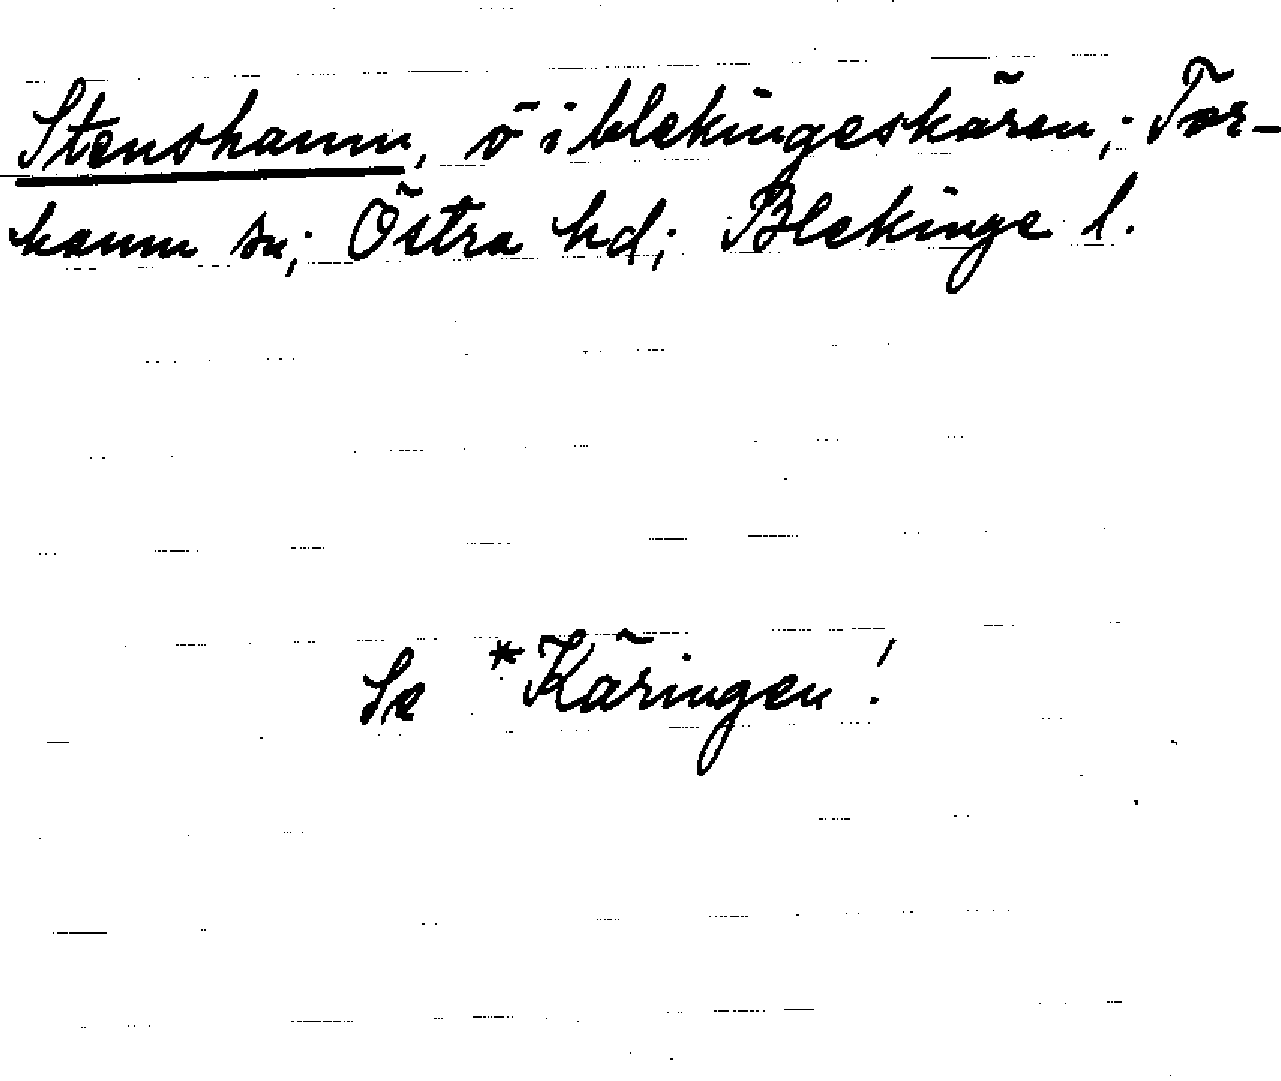 Stenshamn, ö i blekingeskären; Tor-
hamn sn; Östra hd; Blekinge l.
Se *Käringen!